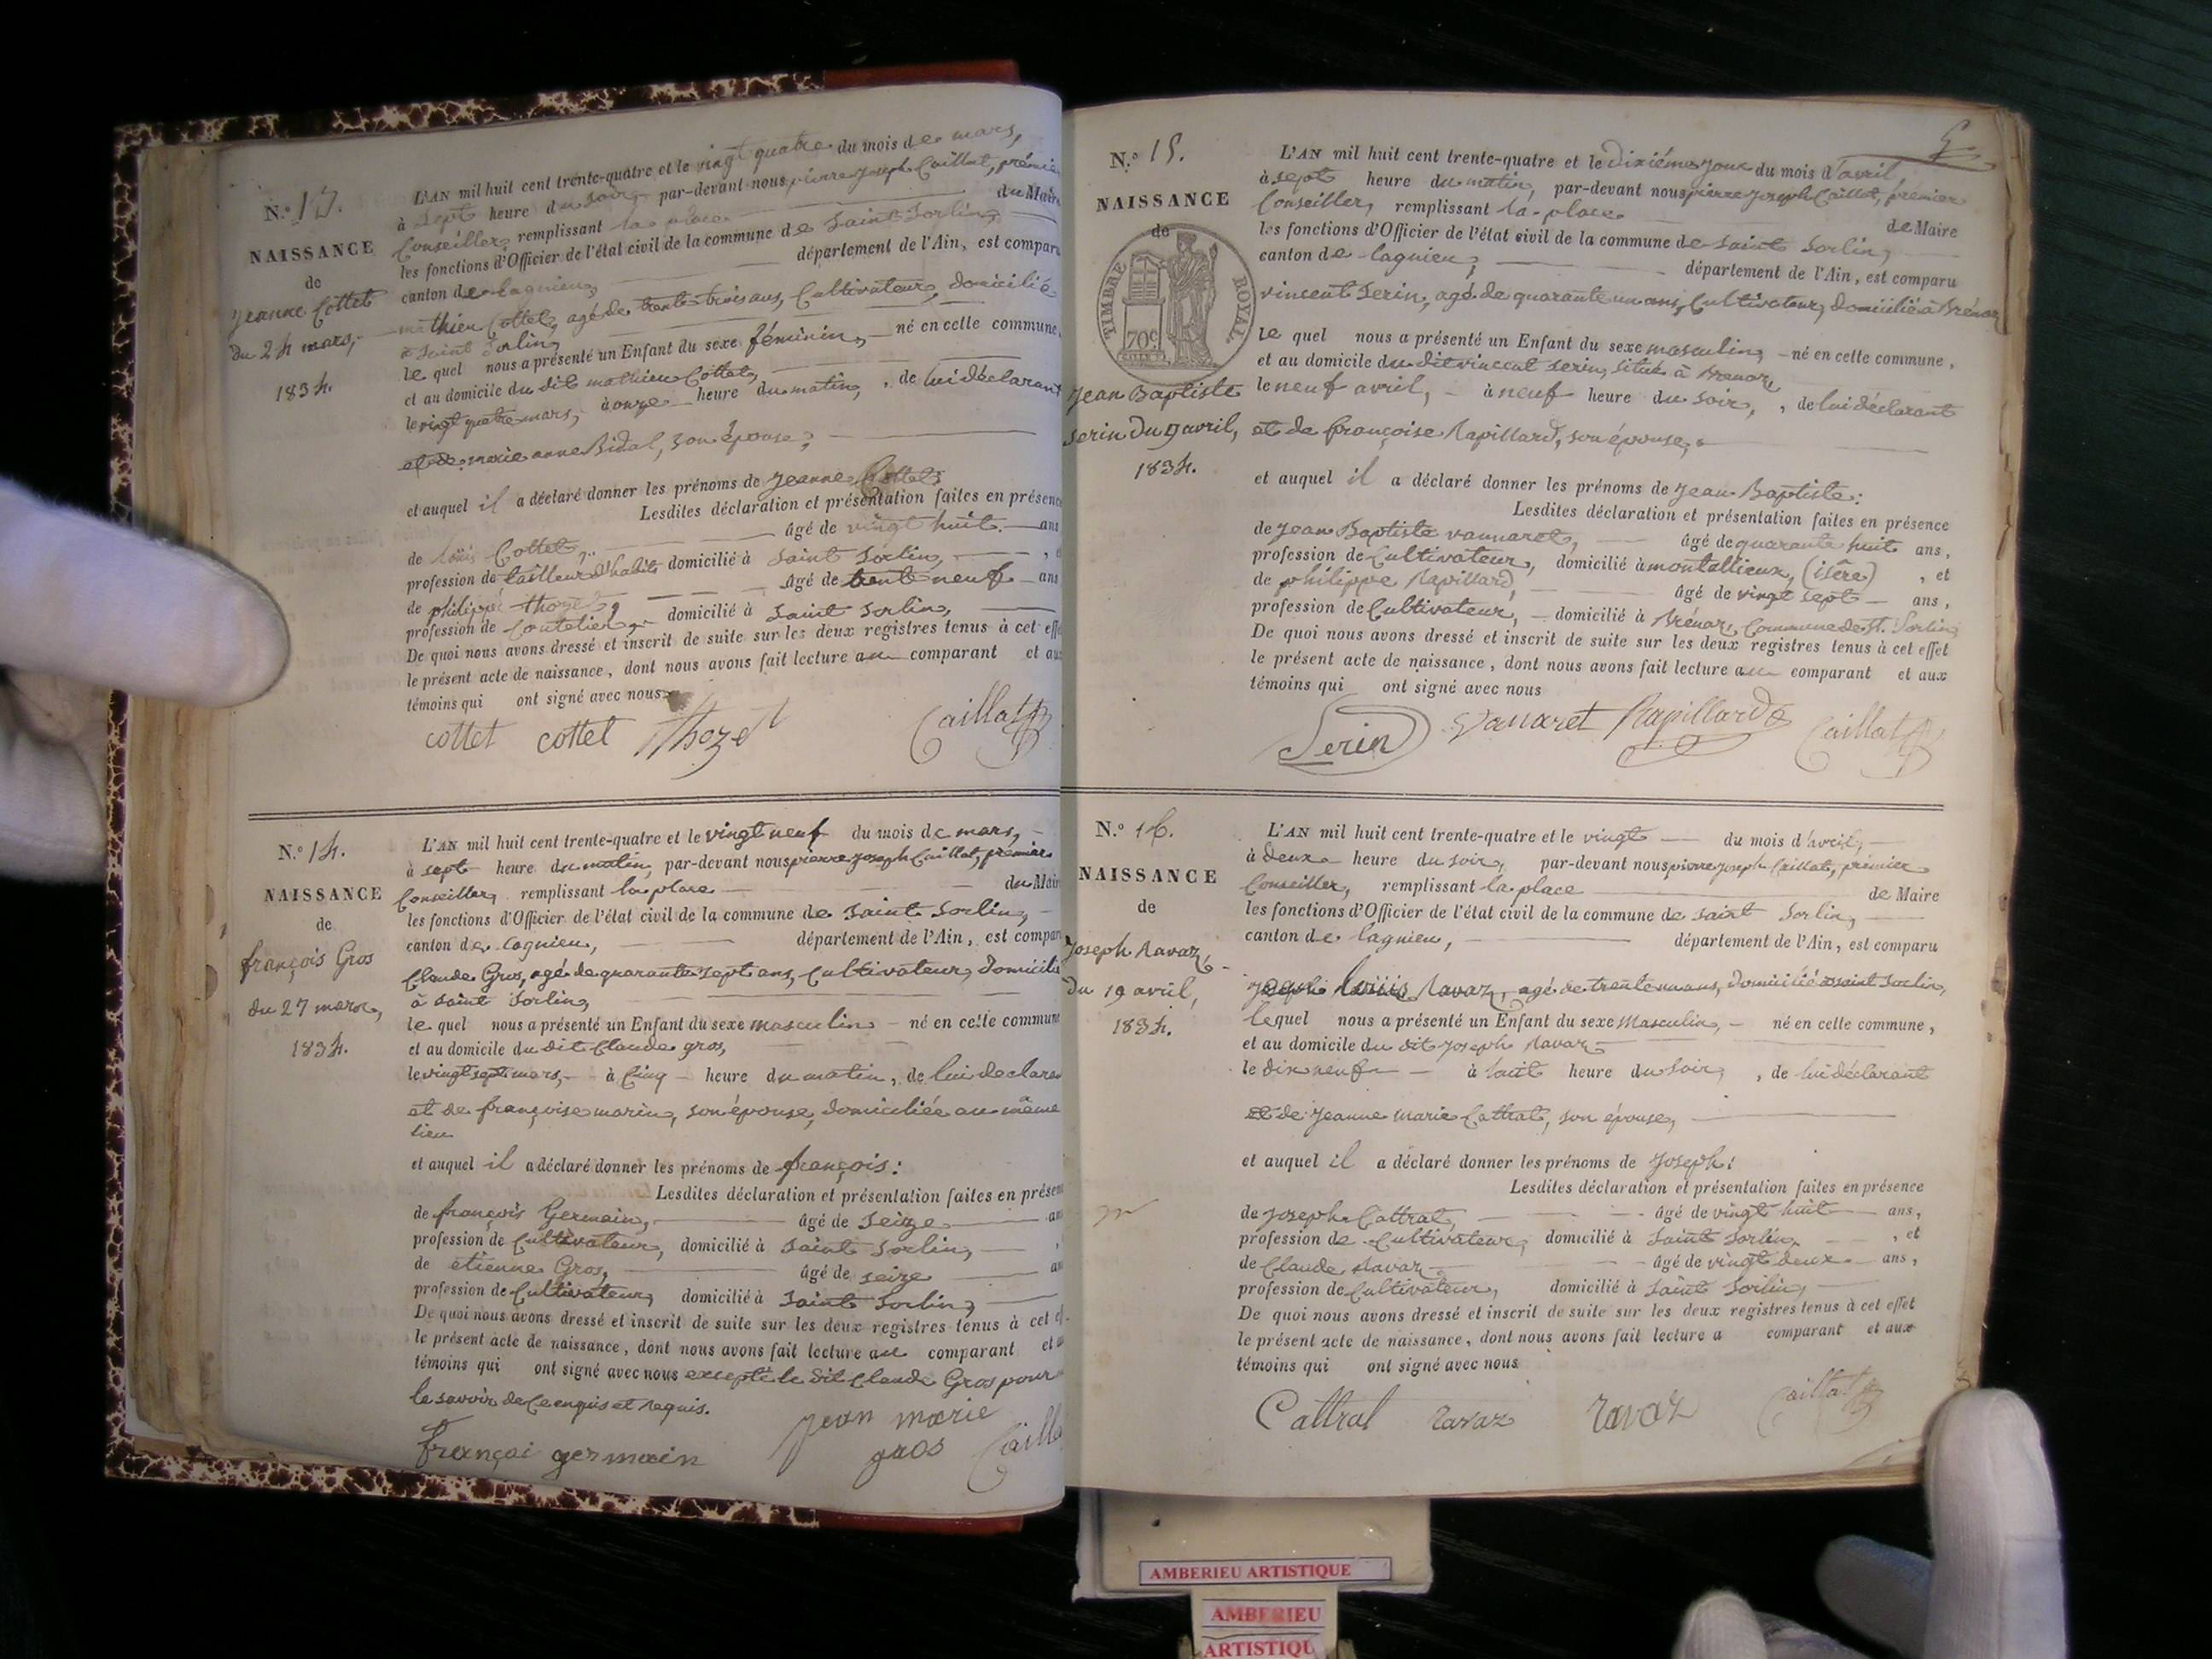 N.º 13.
NAISSANCE
de
Jeanne Cottet
du 24 mars,
1834.
L'AN mil huit cent trente-quatre et le vingt quatre du mois de mars,
à sept heure du soir, par-devant nous pierre joseph Caillat, premier
Conseiller, remplissant la place du Maire
les fonctions d'Officier de l'état civil de la commune de Saint Sorlin,
canton de lagnieu, département de l'Ain, est comparu
mathieu Cottet, agé de trente trois ans, Cultivateur, domicilié
à Saint Sorlin,
le quel nous a présenté un Enfant du sexe féminin, né en cette commune,
et au domicile du dit mathieu Cottet,
le vingt quatre mars, à onze heure du matin, de lui déclarant
et de marie anne Bidal, son épouse;
et auquel il a déclaré donner les prénoms de Jeanne Cottet
Lesdites déclaration et présentation faites en présence
de loüis Cottet, âgé de vingt huit ans
profession de tailleur d'habits domicilié à Saint Sorlin,
de philippe thozet, âgé de trente neuf ans
profession de Coutelier, domicilié à Saint Sorlin,
De quoi nous avons dressé et inscrit de suite sur les deux registres tenus à cet effe
le présent acte de naissance, dont nous avons fait lecture au comparant et aux
témoins qui ont signé avec nous
cottet cottet Thozet Caillat
N.º 14.
NAISSANCE
de
françois Gros
du 27 mars,
1834.
L'AN mil huit cent trente-quatre et le vingt neuf du mois de mars,
à sept heure du matin, par-devant nous pierre joseph Caillat, premier
Conseiller, remplissant la place du Mair
les fonctions d'Officier de l'état civil de la commune de Saint Sorlin,
canton de lagnieu, département de l'Ain, est compar
Claude Gros, agé de quarante sept ans, Cultivateur, domicilié
à Saint Sorlin,
le quel nous a présenté un Enfant du sexe masculin né en cette commune
et au domicile du dit Claude gros,
le vingt sept mars, à Cinq heure du matin, de lui déclaran
et de françoise marin, son épouse, domiciliée au même
lieu
et auquel il a déclaré donner les prénoms de françois:
Lesdites déclaration et présentation faites en présen
de françois Germain, âgé de seize an
profession de Cultivateur, domicilié à Saint Sorlin,
de etienne Gros, âgé de seize an
profession de Cultivateur, domicilié à Saint Sorlin,
De quoi nous avons dressé et inscrit de suite sur les deux registres tenus à cet ef
le présent acte de naissance, dont nous avons fait lecture au comparant et a
témoins qui ont signé avec nous excepté le dit Claude Gros pour
le savoir de Ce enquis et requis.
françoi germain jean marie gros Cailla
N.º 15.
NAISSANCE
de
TIMBRE ROYAL
70c
Jean Baptiste
Serin du 9 avril,
1834.
L'AN mil huit cent trente-quatre et le dixième jour du mois d'avril
à sept heure du matin, par-devant nous pierre joseph Caillat, premier
Conseiller, remplissant la place de Maire
les fonctions d'Officier de l'état civil de la commune de Saint Sorlin,
canton de lagnieu, département de l'Ain, est comparu
vincent Serin, agé de quarante un ans, Cultivateur, domicilié à Brénaz
le quel nous a présenté un Enfant du sexe masculin, né en cette commune,
et au domicile du dit vincent Serin, situé à Brenaz
le neuf avril, à neuf heure du soir, de lui déclarant
et de françoise Rapillard, son épouse,
et auquel il a déclaré donner les prénoms de Jean Baptiste:
Lesdites déclaration et présentation faites en présence
de Jean Baptiste vannaret, âgé de quarante huit ans,
profession de Cultivateur, domicilié à montallieux, (isère), et
de philippe Rapillard, âgé de vingt sept ans,
profession de Cultivateur, domicilié à Brénaz, Commune de St. Sorlin
De quoi nous avons dressé et inscrit de suite sur les deux registres tenus à cet effet
le présent acte de naissance, dont nous avons fait lecture au comparant et aux
témoins qui ont signé avec nous
Serin Vanaret Rapillard Caillat
N.º 16.
NAISSANCE
de
Joseph Ravaz
du 19 avril,
1834.
L'AN mil huit cent trente-quatre et le vingt du mois d'avril,
à deux heure du soir, par-devant nous pierre joseph Caillat, premier
Conseiller, remplissant la place de Maire
les fonctions d'Officier de l'état civil de la commune de Saint Sorlin,
canton de lagnieu, département de l'Ain, est comparu
joseph loüis Ravaz, agé de trente un ans, domicilié à Saint Sorlin,
le quel nous a présenté un Enfant du sexe Masculin, né en cette commune,
et au domicile du dit joseph Ravaz
le dix neuf à huit heure du soir, de lui déclarant
et de Jeanne marie Cattrat, son épouse,
et auquel il a déclaré donner les prénoms de Joseph:
Lesdites déclaration et présentation faites en présence
de Joseph Cattrat, âgé de vingt huit ans,
profession de Cultivateur, domicilié à Saint Sorlin, et
de Claude Ravaz âgé de vingt deux ans,
profession de Cultivateur, domicilié à Saint Sorlin,
De quoi nous avons dressé et inscrit de suite sur les deux registres tenus à cet effet
le présent acte de naissance, dont nous avons fait lecture a comparant et aux
témoins qui ont signé avec nous
Cattrat ravaz ravaz Caillat
AMBERIEU ARTISTIQUE
AMBERIEU
ARTISTIQU